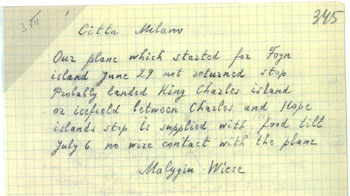 345
Citta Milano
Our plane which started for Foyn
island June 29 not returned stop
Probably landed King Charles island
or icefield between Charles and Hope
islands stop is supplied with food till
July 6 no wire contact with the plane
Malygin Wiese